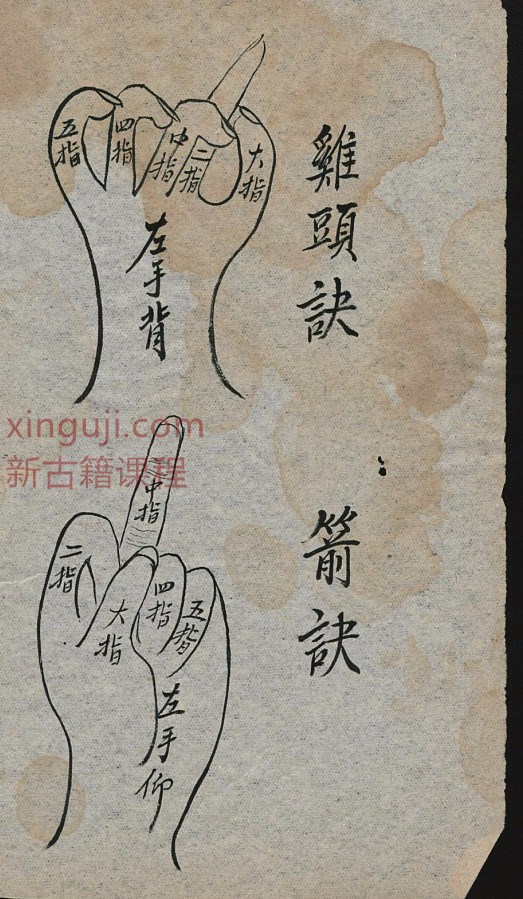 雞頭訣
五指
四指
中指
二指
大指
左手背
xinguji.com
新古籍课程
箭訣
中指
二指
大指
四指
五指
左手仰